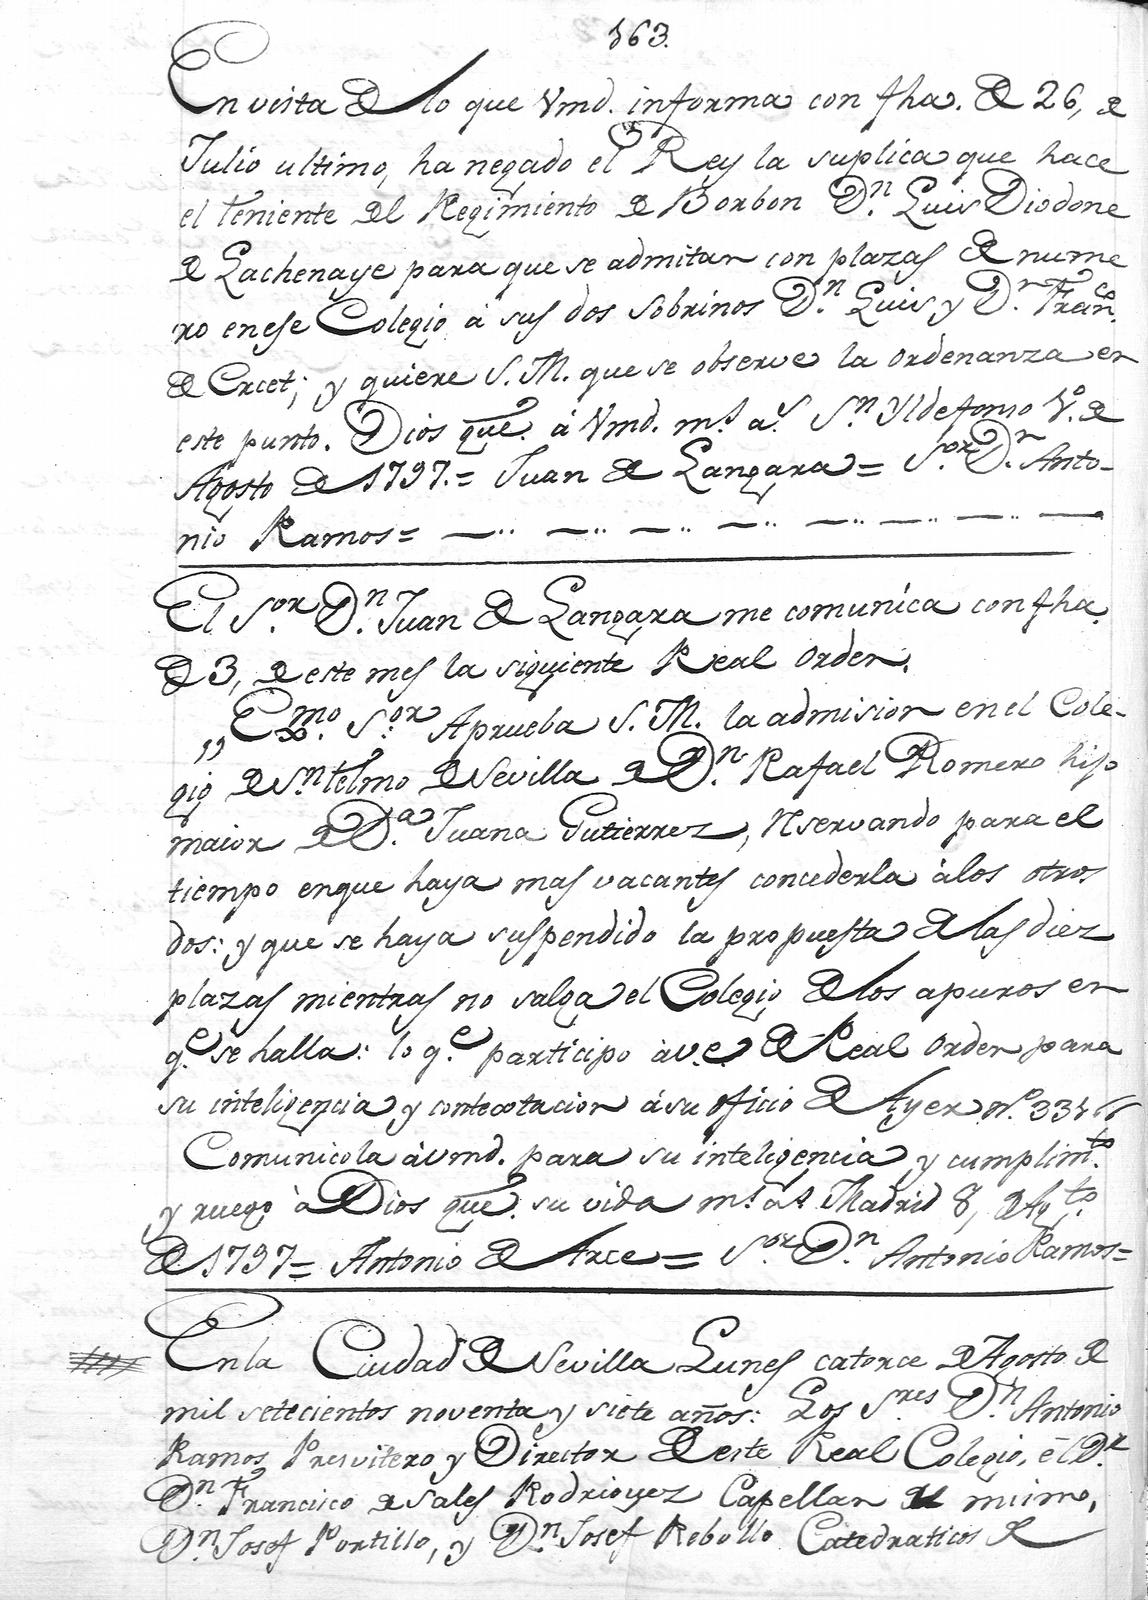 163.
En vista de lo que Vmd. informa con fha. de 26, de
Julio ultimo, ha negado el Rey la suplica que hace
el teniente del Regimiento de Borbon Dn. Luis Diodone
de Lachenaye para que se admitan con plazas de nume
ro en ese Colegio á sus dos sobrinos Dn. Luis y Dn. Franco.
de Crcet; y quiere S. M. que se observe la ordenanza en
este punto. Dios gue. á Vmd. ms. as. Sn. Yldefonso 1o. de
Agosto de 1797.= Juan de Langara= Sor. Dn. Anto-
nio Ramos=
El Sor. Dn. Juan de Langara me comunica con fha.
de 3, de este mes la siguiente Real orden.
„Exmo. Sor. Aprueba S. M. la admision en el Cole-
gio de Sn. telmo de Sevilla de Dn. Rafael Romero hijo
maior de Da. Juana Gutierrez, reservando para el
tiempo en que haya mas vacantes concederla á los otros
dos: y que se haya suspendido la propuesta de las diez
plazas mientras no salga el Colegio de los apuros en
qe. se halla: lo qe. participo á v.e. de Real orden para
su inteligencia y contextacion á su oficio de Ayer no.
Comunicola á vmd. para su inteligencia y cumplimto.
y ruego á Dios gue. su vida ms. as. Madrid 8, de Agto.
de 1797= Antonio de Arce= Sor. Dn. Antonio Ramos=
En la Ciudad de Sevilla Lunes catorce de Agosto de
mil setecientos noventa y siete años: Los Sres. Dn. Antonio
Ramos Presvitero y Director de este Real Colegio, él Dr.
Dn. Francisco de Sales Rodriguez Capellan del mismo,
Dn. Josef Portillo, y Dn. Josef Rebollo Catedraticos de